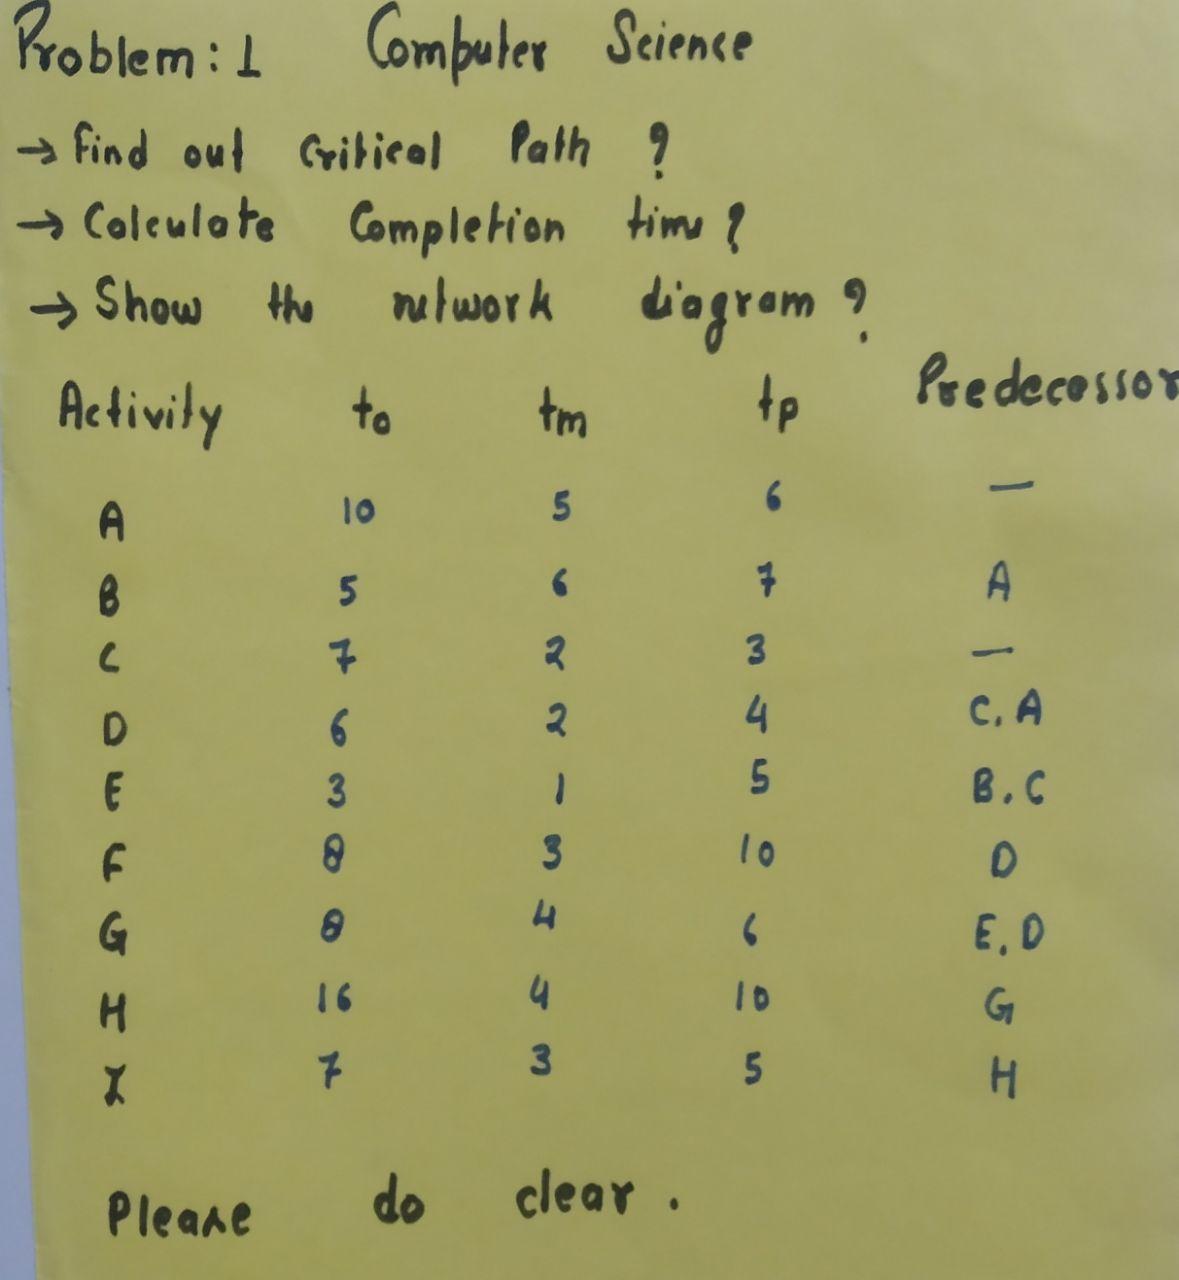 Problem: 1 Computer Science
→ Find out Critical Path ?
→ Calculate Completion time ?
→ Show the network diagram ?
Activity to tm tp Predecessor
A 10 5 6 —
B 5 6 7 A
C 7 2 3 —
D 6 2 4 C, A
E 3 1 5 B, C
F 8 3 10 D
G 8 4 6 E, D
H 16 4 10 G
I 7 3 5 H
Please do clear.